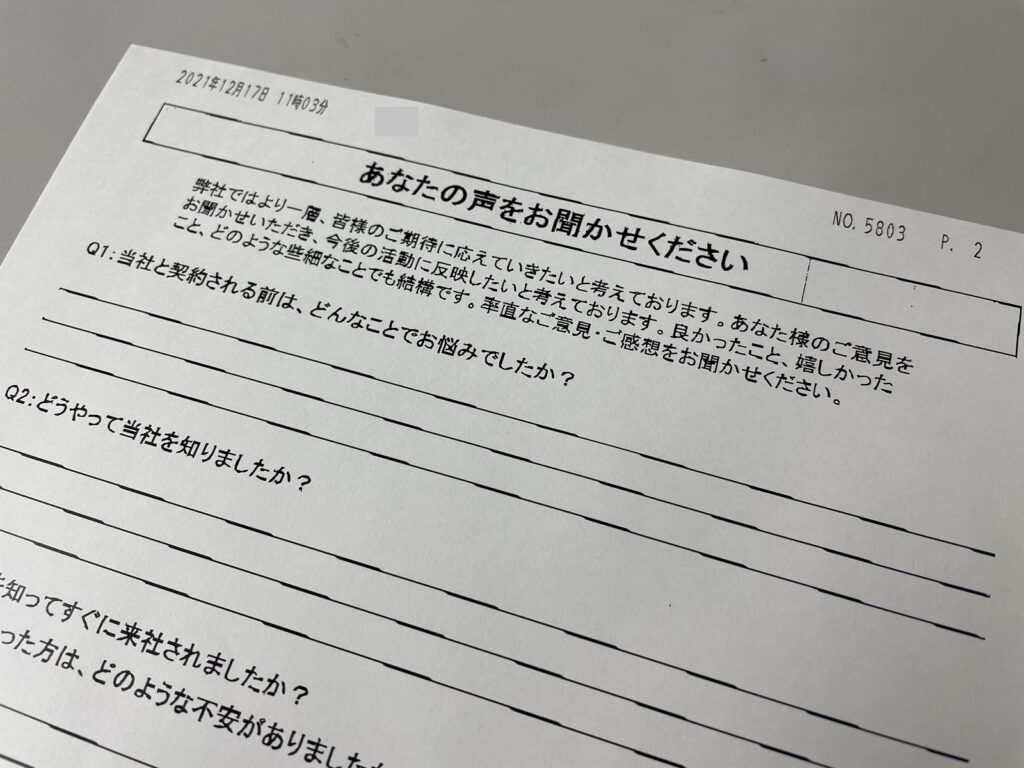 2021年12月17日 11時03分
NO. 5803 P. 2
あなたの声をお聞かせください
弊社ではより一層、皆様のご期待に応えていきたいと考えております。あなた様のご意見を
お聞かせいただき、今後の活動に反映したいと考えております。良かったこと、嬉しかった
こと、どのような些細なことでも結構です。率直なご意見・ご感想をお聞かせください。
Q1:当社と契約される前は、どんなことでお悩みでしたか？
Q2:どうやって当社を知りましたか？
を知ってすぐに来社されましたか？
った方は、どのような不安がありました